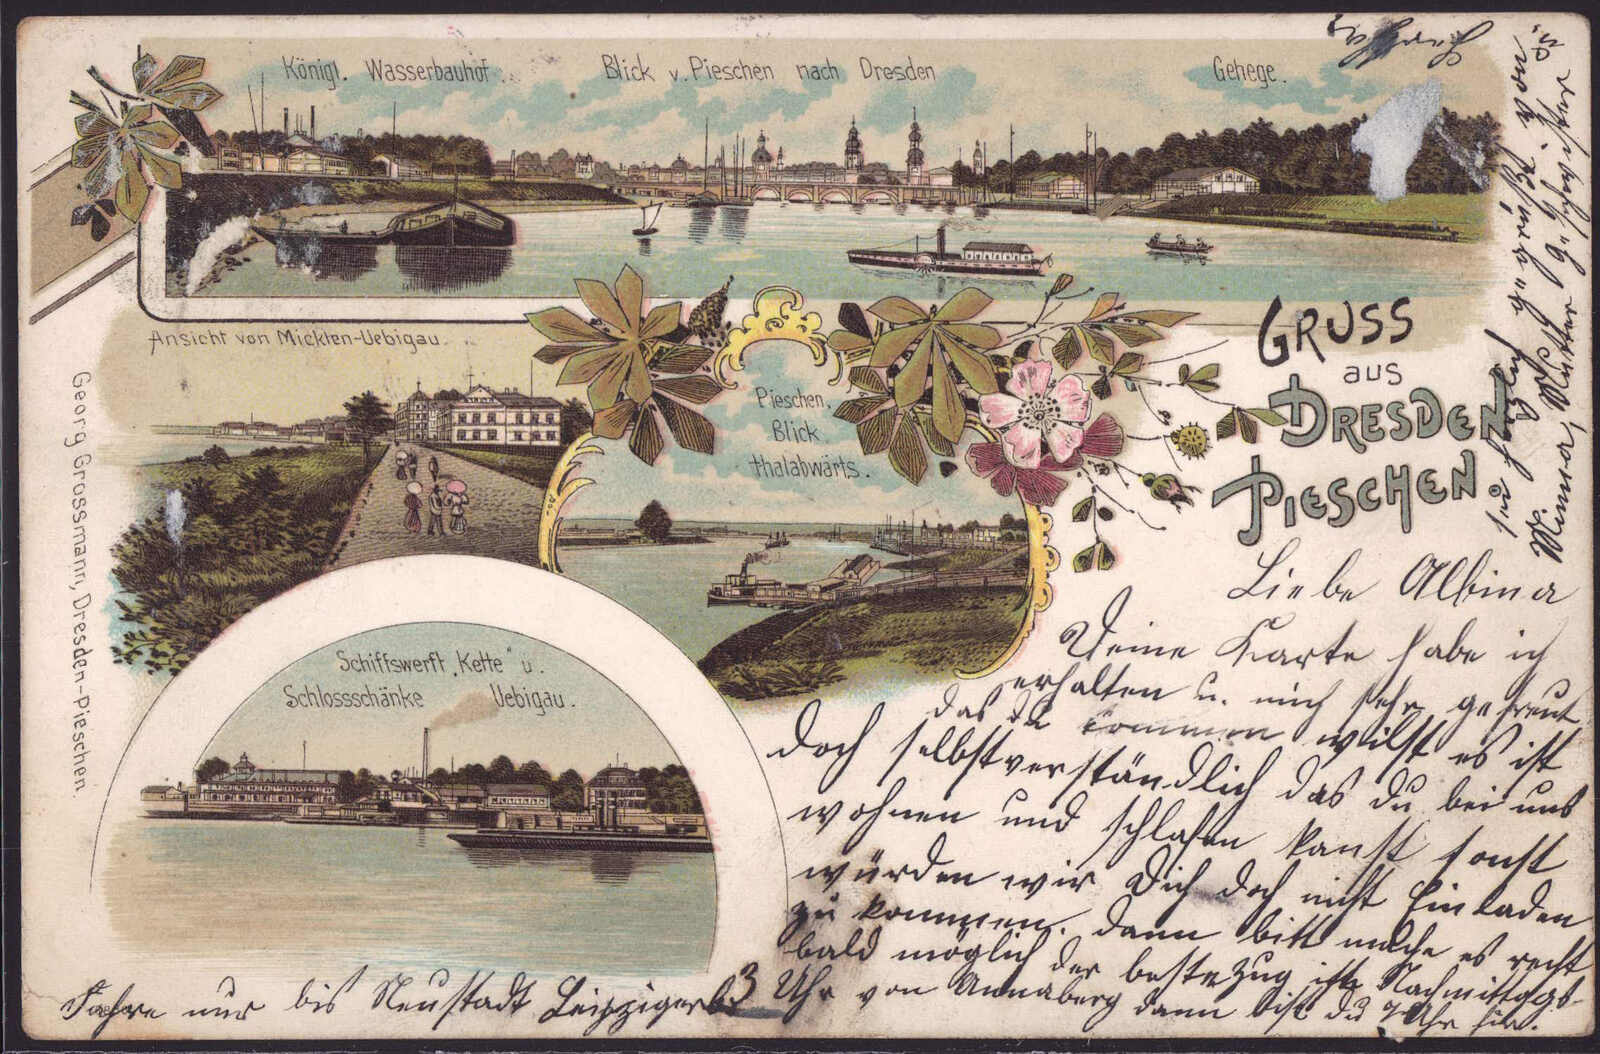 Königl. Wasserbauhof.
Blick v. Pieschen nach Dresden
Gehege.
Ansicht von Mickten-Uebigau.
Pieschen,
Blick
thalabwärts.
GRUSS
aus
DRESDEN
PIESCHEN
Schiffswerft „Kette" u.
Schlossschänke Uebigau.
Georg Grossmann, Dresden-Pieschen.
Liebe Albina
Deine Karte habe ich
erhalten u. mich sehr gefreut
das du kommen wilst es ist
doch selbstverständlich das du bei uns
wohnen und schlafen kanst sonst
würden wir Dich doch nicht Einladen
zu kommen. Dann bitt mache es recht
bald möglich der beste Zug ist Nachmittags
3 Uhr von Annaberg dann bist du 7 Uhr hier.
Fahre nur bis Neustadt Leipziger
sei herzlich gegrüßt von
Minna, Mutter Geschwister